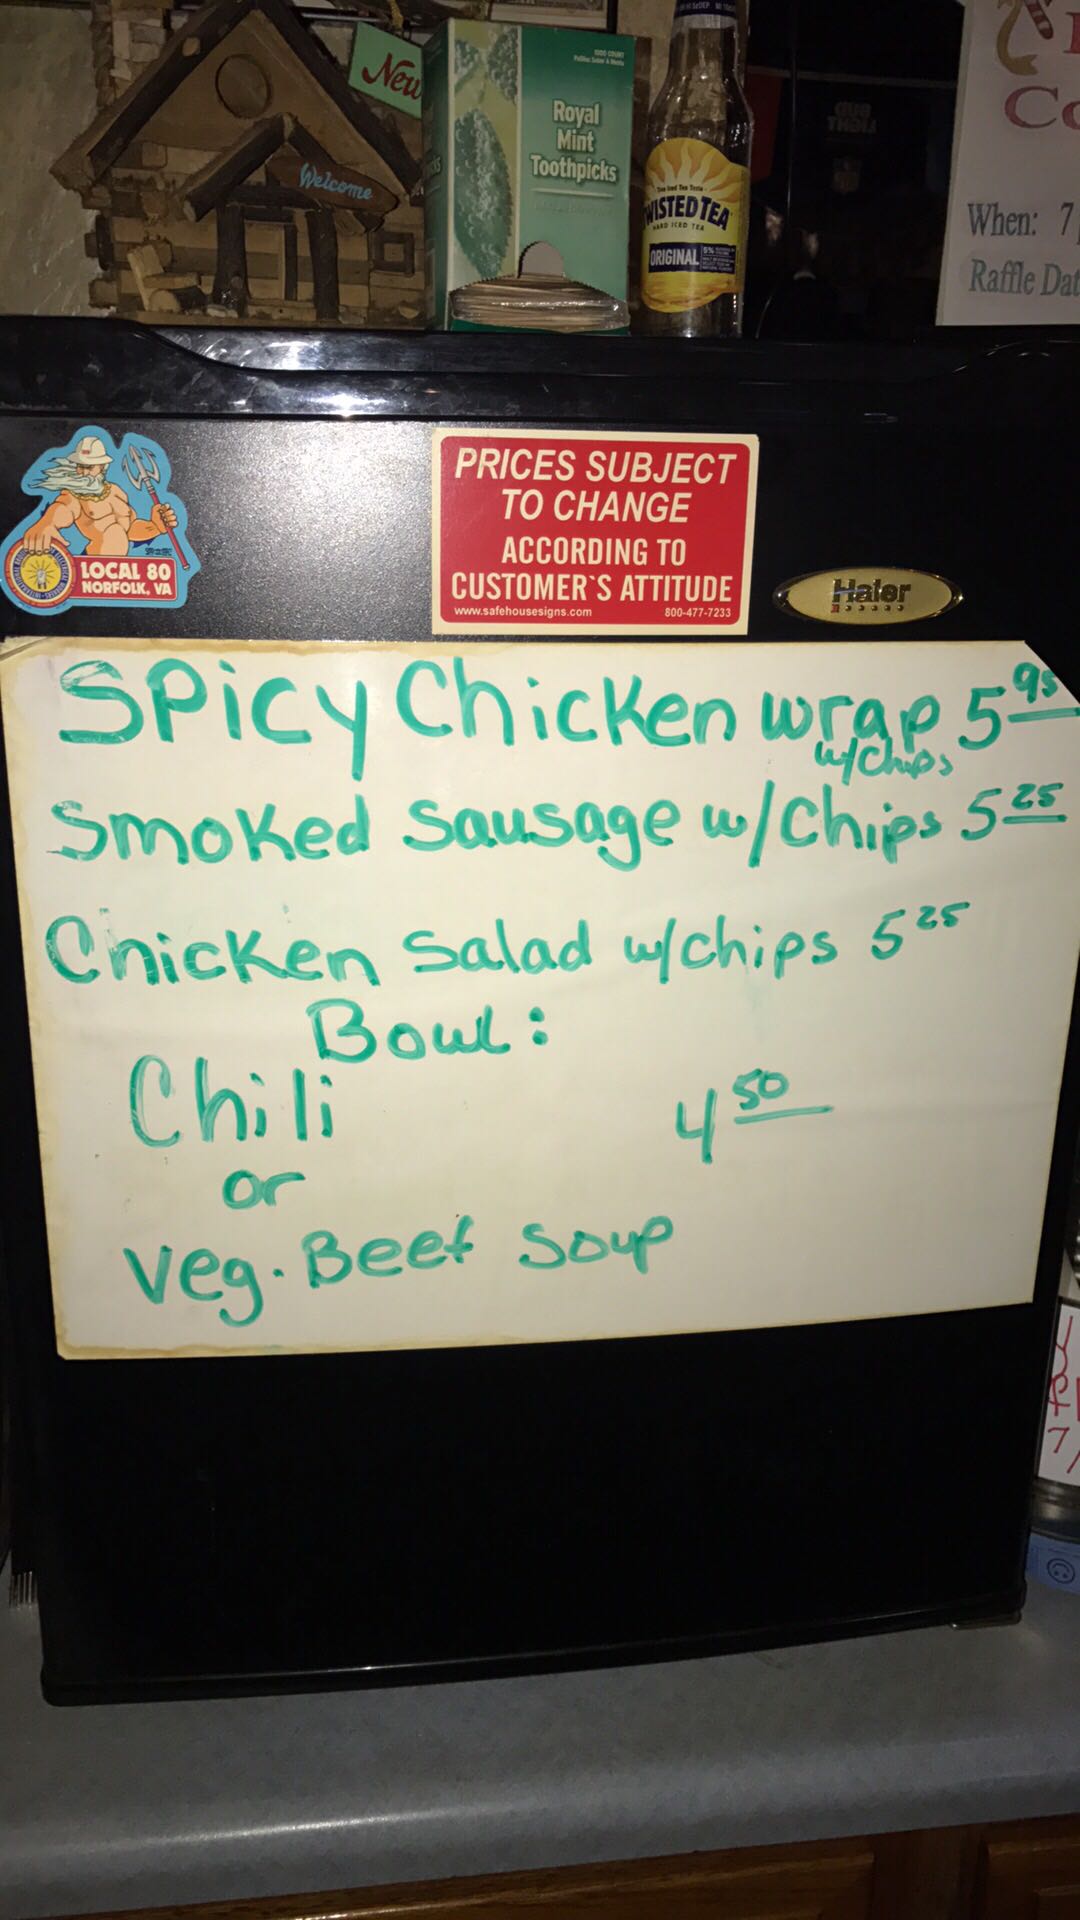 New
Welcome
1000 COUNT
Royal
Mint
Toothpicks
TWISTED TEA
HARD ICED TEA
ORIGINAL
5%
BUD
LIGHT
Co
When: 7
Raffle Dat
PRICES SUBJECT
TO CHANGE
ACCORDING TO
CUSTOMER`S ATTITUDE
www.safehousesigns.com 800-477-7233
LOCAL 80
NORFOLK, VA
Haier
Spicy Chicken wrap 5 95
w/Chips
Smoked Sausage w/Chips 5 25
Chicken Salad w/chips 5 25
Bowl:
Chili 4 50
or
Veg. Beef Soup